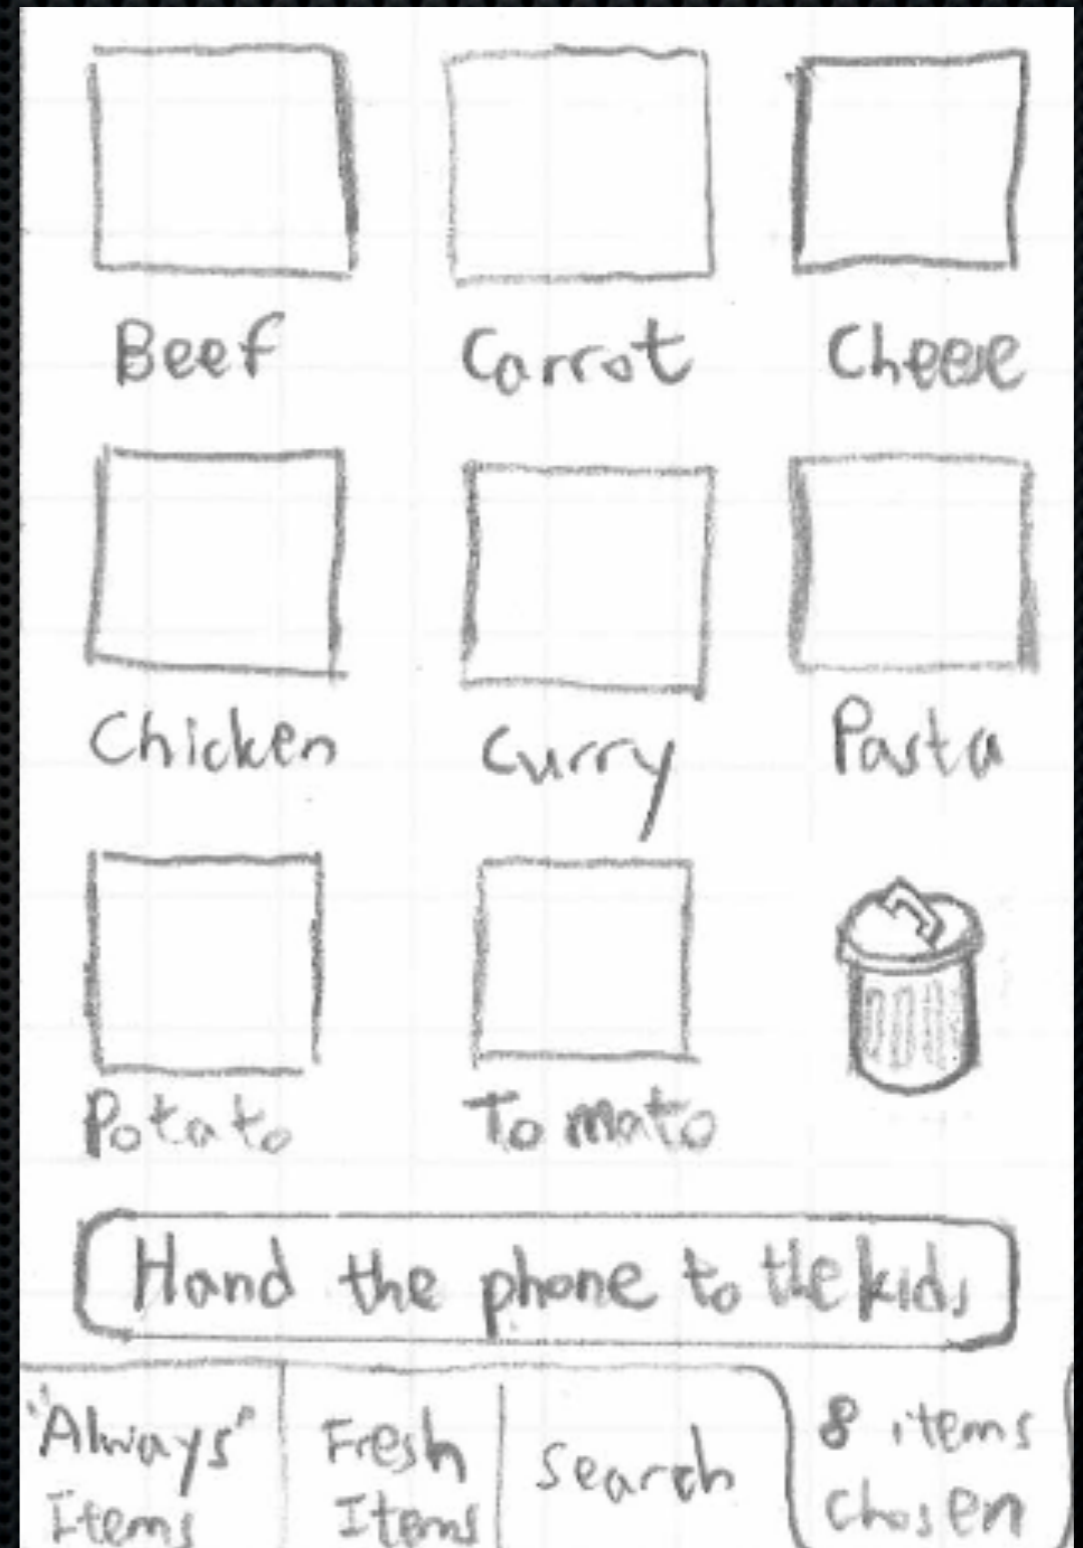 Beef Carrot Cheese
Chicken Curry Pasta
Potato Tomato
Hand the phone to the kids
"Always" Items
Fresh Items
Search
8 items chosen